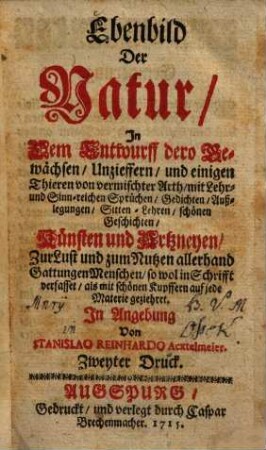 Ebenbild
Der
Natur/
In
Dem Entwurff dero Ge-
wächsen/ Unzieffern/ und einigen
Thieren von vermischter Arth/ mit Lehr-
und Sinn-reichen Sprüchen/ Gedichten/ Auß-
legungen/ Sitten-Lehren/ schönen
Geschichten/
Künsten und Artzneyen/
Zur Lust und zum Nutzen allerhand
Gattungen Menschen/ so wol in Schrifft
verfasset/ als mit schönen Kupffern auf jede
Materie geziehret.
In Angebung
Von
STANISLAO REINHARDO Acxtelmeier.
Zweyter Druck.
AUGSPURG/
Gedruckt/ und verlegt durch Caspar
Brechenmacher. 1715.